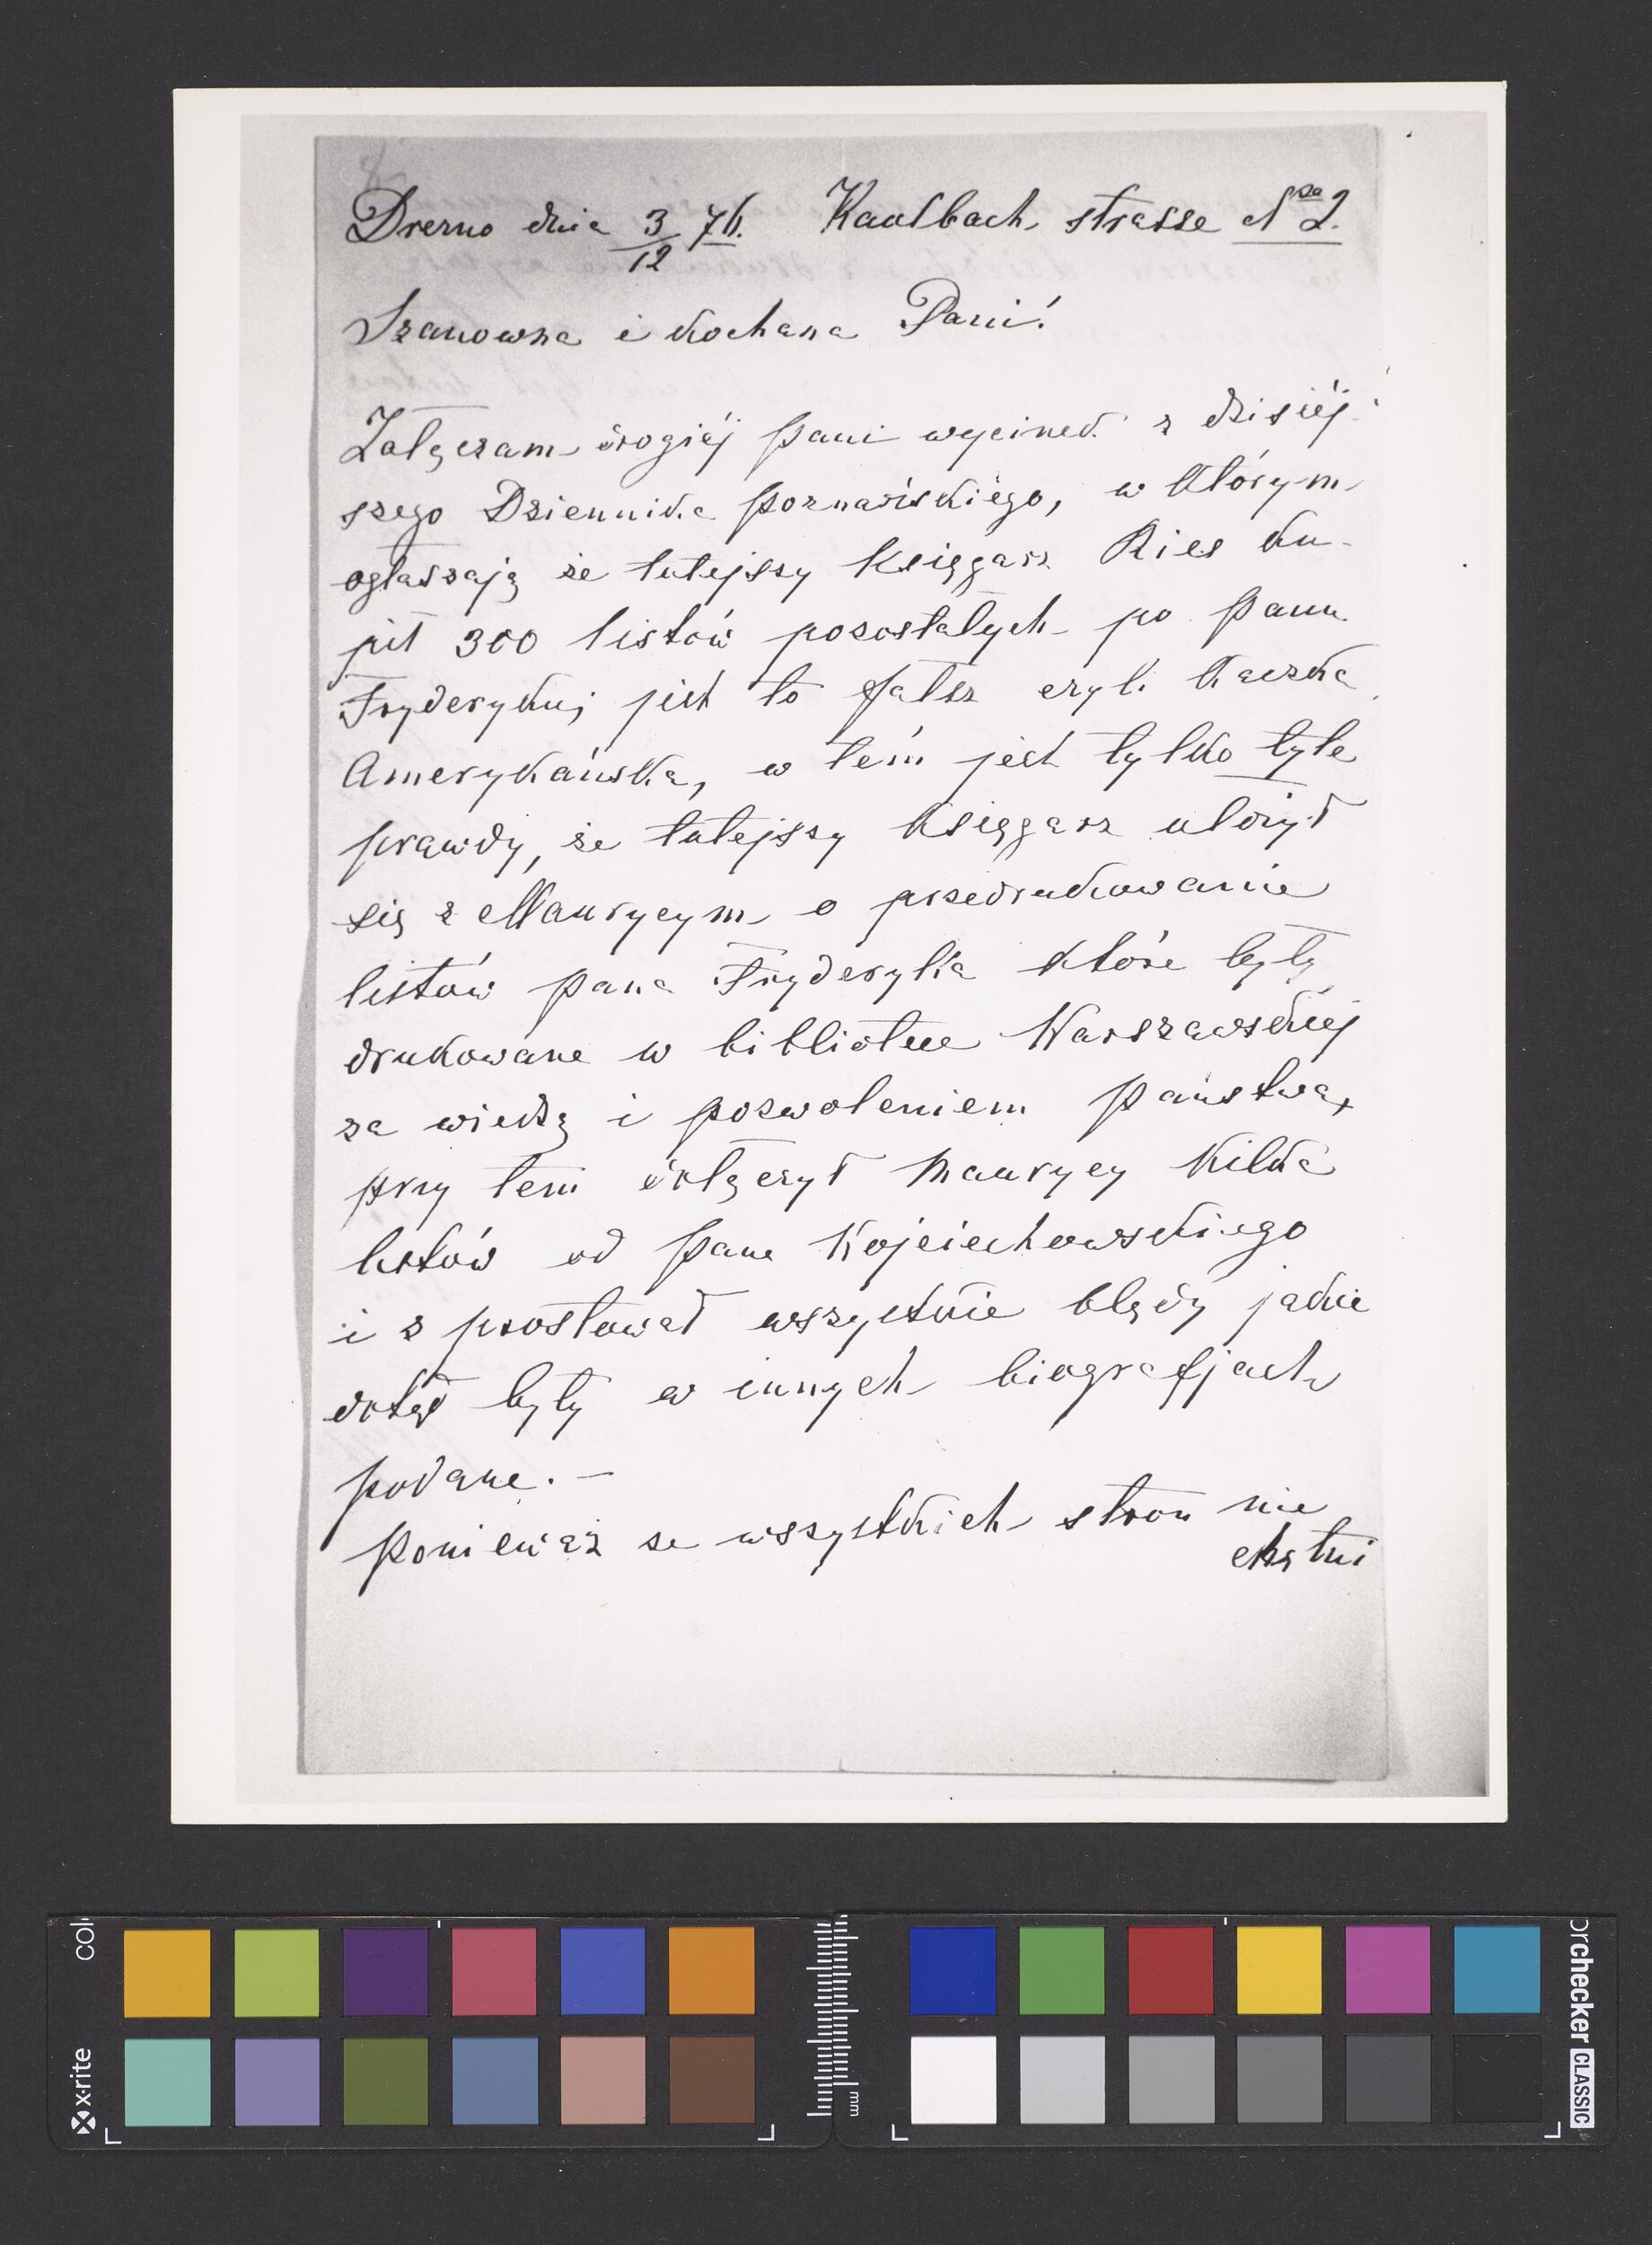 Drezno dnia 3/12 76. Kaulbach strasse No 2.
Szanowna i Kochana Pani!
Załączam drogiéj Pani wycinek z dzisiéj-
szego Dziennika Poznańskiego, w którym
ogłaszają że tutejszy Księgarz Ries ku-
pił 300 listów pozostałych po Panu
Fryderyku; jest to fałsz czyli Kaczka
Amerykańska, w tém jest tylko tyle
prawdy, że tutejszy Księgarz ułożył
się z Maurycym o przedrukowanie
listów Pana Fryderyka które były
drukowane w bibliotece Warszawskiéj
za wiedzą i pozwoleniem Państwa,
przy tem dołączył Maurycy Kilka
listów od Pana Wojciechowskiego
i sprostował wszystkie błędy jakie
dotąd były w innych biografjach
podane. —
Ponieważ ze wszystkich stron nie
chętni
x-rite
colorchecker CLASSIC
mm